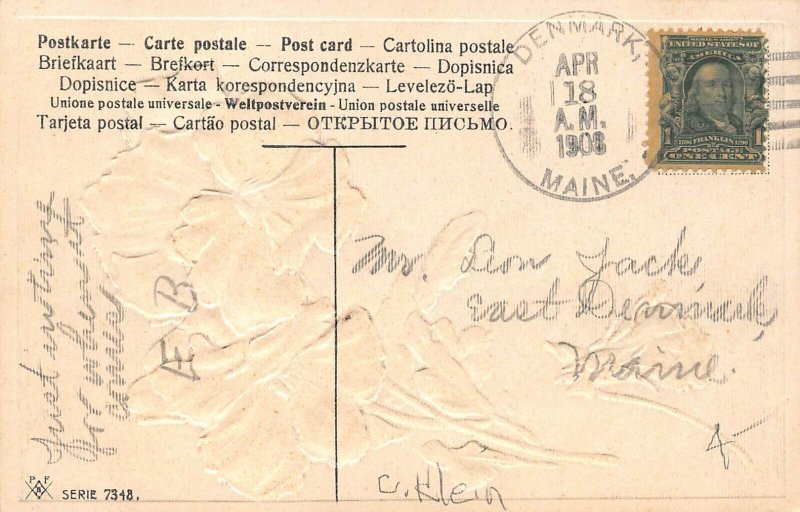 Postkarte — Carte postale — Post card — Cartolina postale
Briefkaart — Brefkort — Correspondenzkarte — Dopisnica
Dopisnice — Karta korespondencyjna — Levelező-Lap
Unione postale universale - Weltpostverein - Union postale universelle
Tarjeta postal — Cartão postal — ОТКРЫТОЕ ПИСЬМО.
DENMARK,
APR
18
A.M.
1908
MAINE.
SERIES 1902
UNITED STATES OF
AMERICA
1 1706 FRANKLIN 1790 1
POSTAGE
ONE CENT
Mr. Don Jack
East Denmark,
Maine.
Just
for
E B
C. Klein
P F
B
SERIE 7348.